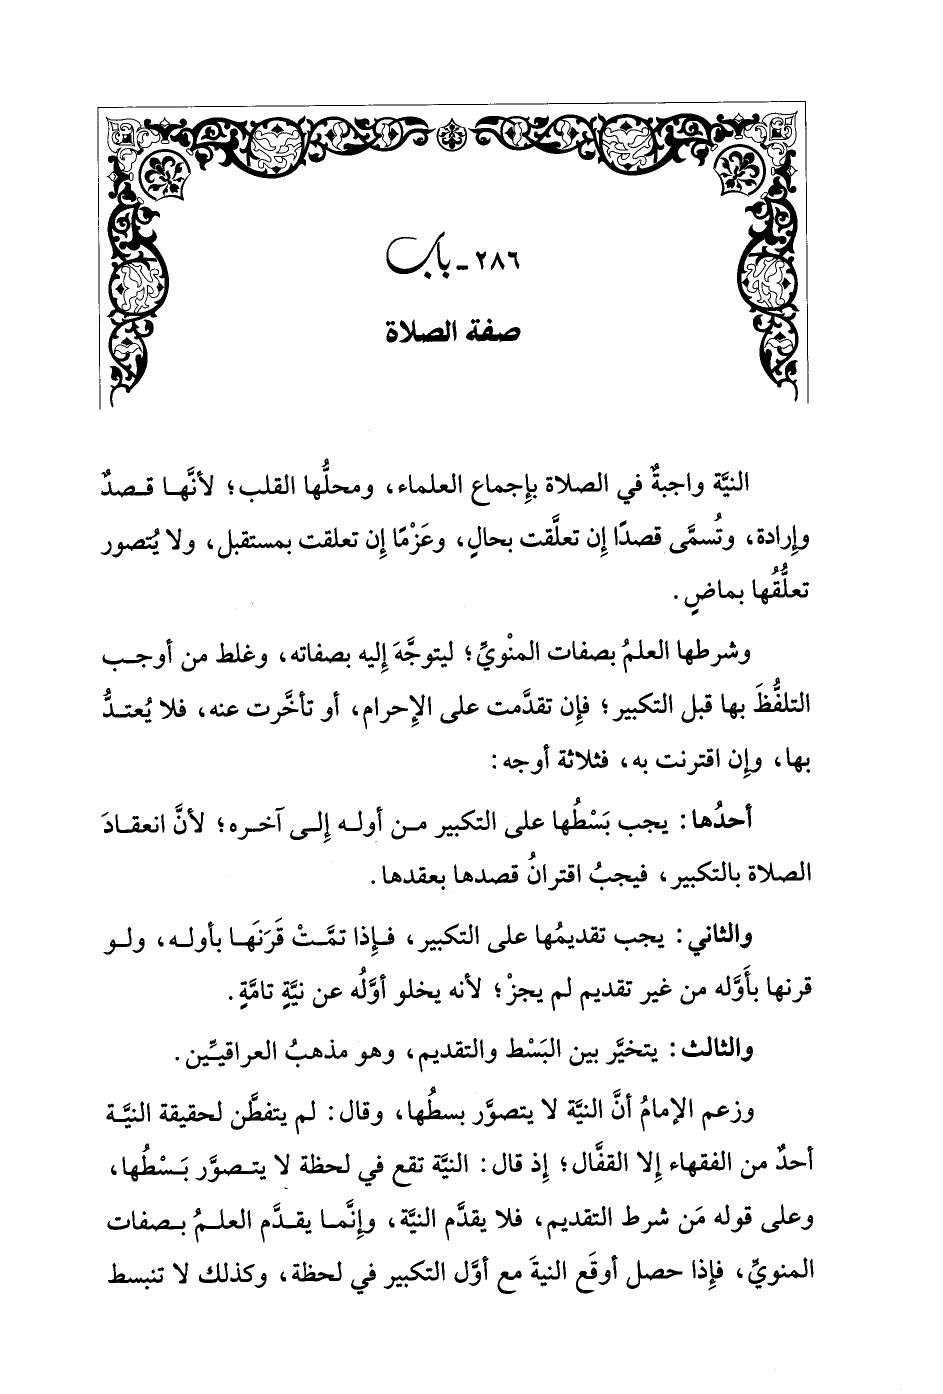 ٢٨٦ - باب
صفة الصلاة
النيَّة واجبةٌ في الصلاة بإجماع العلماء، ومحلُّها القلب؛ لأنَّهـا قـصدٌ
وإرادة، وتُسمَّى قصدًا إن تعلَّقت بحالٍ، وعَزْمًا إن تعلقت بمستقبل، ولا يُتصور
تعلُّقُها بماضٍ.
وشرطها العلمُ بصفات المنْويِّ؛ ليتوجَّهَ إليه بصفاته، وغلط من أوجـب
التلفُّظَ بها قبل التكبير؛ فإن تقدَّمت على الإحرام، أو تأخَّرت عنه، فلا يُعتـدُّ
بها، وإن اقترنت به، فثلاثة أوجه:
أحدُها: يجب بَسْطُها على التكبير مـن أولـه إلـى آخـره؛ لأنَّ انعقـادَ
الصلاة بالتكبير، فيجبُ اقترانُ قصدها بعقدها.
والثاني: يجب تقديمُها على التكبير، فـإذا تمَّـتْ قَرَنَهـا بأولـه، ولـو
قرنها بأَوَّله من غير تقديم لم يجزْ؛ لأنه يخلو أوَّلُه عن نيَّةٍ تامَّةٍ.
والثالث: يتخيَّر بين البَسْط والتقديم، وهو مذهبُ العراقيِّين.
وزعم الإمامُ أنَّ النيَّة لا يتصوَّر بسطُها، وقال: لم يتفطَّن لحقيقة النيَّـة
أحدٌ من الفقهاء إلا القفَّال؛ إذ قال: النيَّة تقع في لحظة لا يتـصوَّر بَـسْطُها،
وعلى قوله مَن شرط التقديم، فلا يقدَّم النيَّة، وإنَّمـا يقـدَّم العلـمُ بـصفات
المنويِّ، فإذا حصل أوقَع النيةَ مع أوَّل التكبير في لحظة، وكذلك لا تنبسط